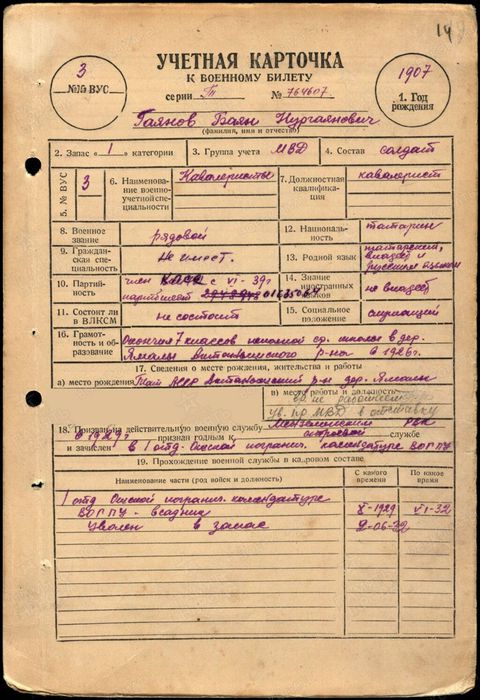 14
3
№№ ВУС
УЧЕТНАЯ КАРТОЧКА
К ВОЕННОМУ БИЛЕТУ
серии Тт № 764607
1907
1. Год рождения
Гаянов Баян Нургаянович
(фамилия, имя и отчество)
2. Запас « 1 » категории
3. Группа учета МВД
4. Состав солдат
5. № ВУС 3
6. Наименование военно-учетной специальности Кавалеристы
7. Должностная квалификация кавалерист
8. Военное звание рядовой
12. Национальность татарин
9. Гражданская специальность не имеет.
13. Родной язык татарский, владеет русским языком
10. Партийность член КПСС с VI-39г партбилет 01635064
14. Знание иностранных языков не владеет
11. Состоит ли в ВЛКСМ не состоит
15. Социальное положение служащий
16. Грамотность и образование Окончил 7 классов неполной ср. школы в дер.
Ямалы р-на в 1926г.
17. Сведения о месте рождения, жительства и работы
а) место рождения Тат АССР р-н дер. Ямалы
в) место работы и должность не работает
МВД в отставку
18. Призван на действительную военную службу Мензелинским РВК
в 1929г признан годным к строевой
и зачислен в 1 отд. Омской погранич. комендатуре ВОГПУ
19. Прохождение военной службы в кадровом составе
Наименование части (род войск и должность)
С какого времени
По какое время
1 отд Омской погранич. комендатуре
ВОГПУ - всадник X-1929 VI-32
Уволен в запас 2-06-32